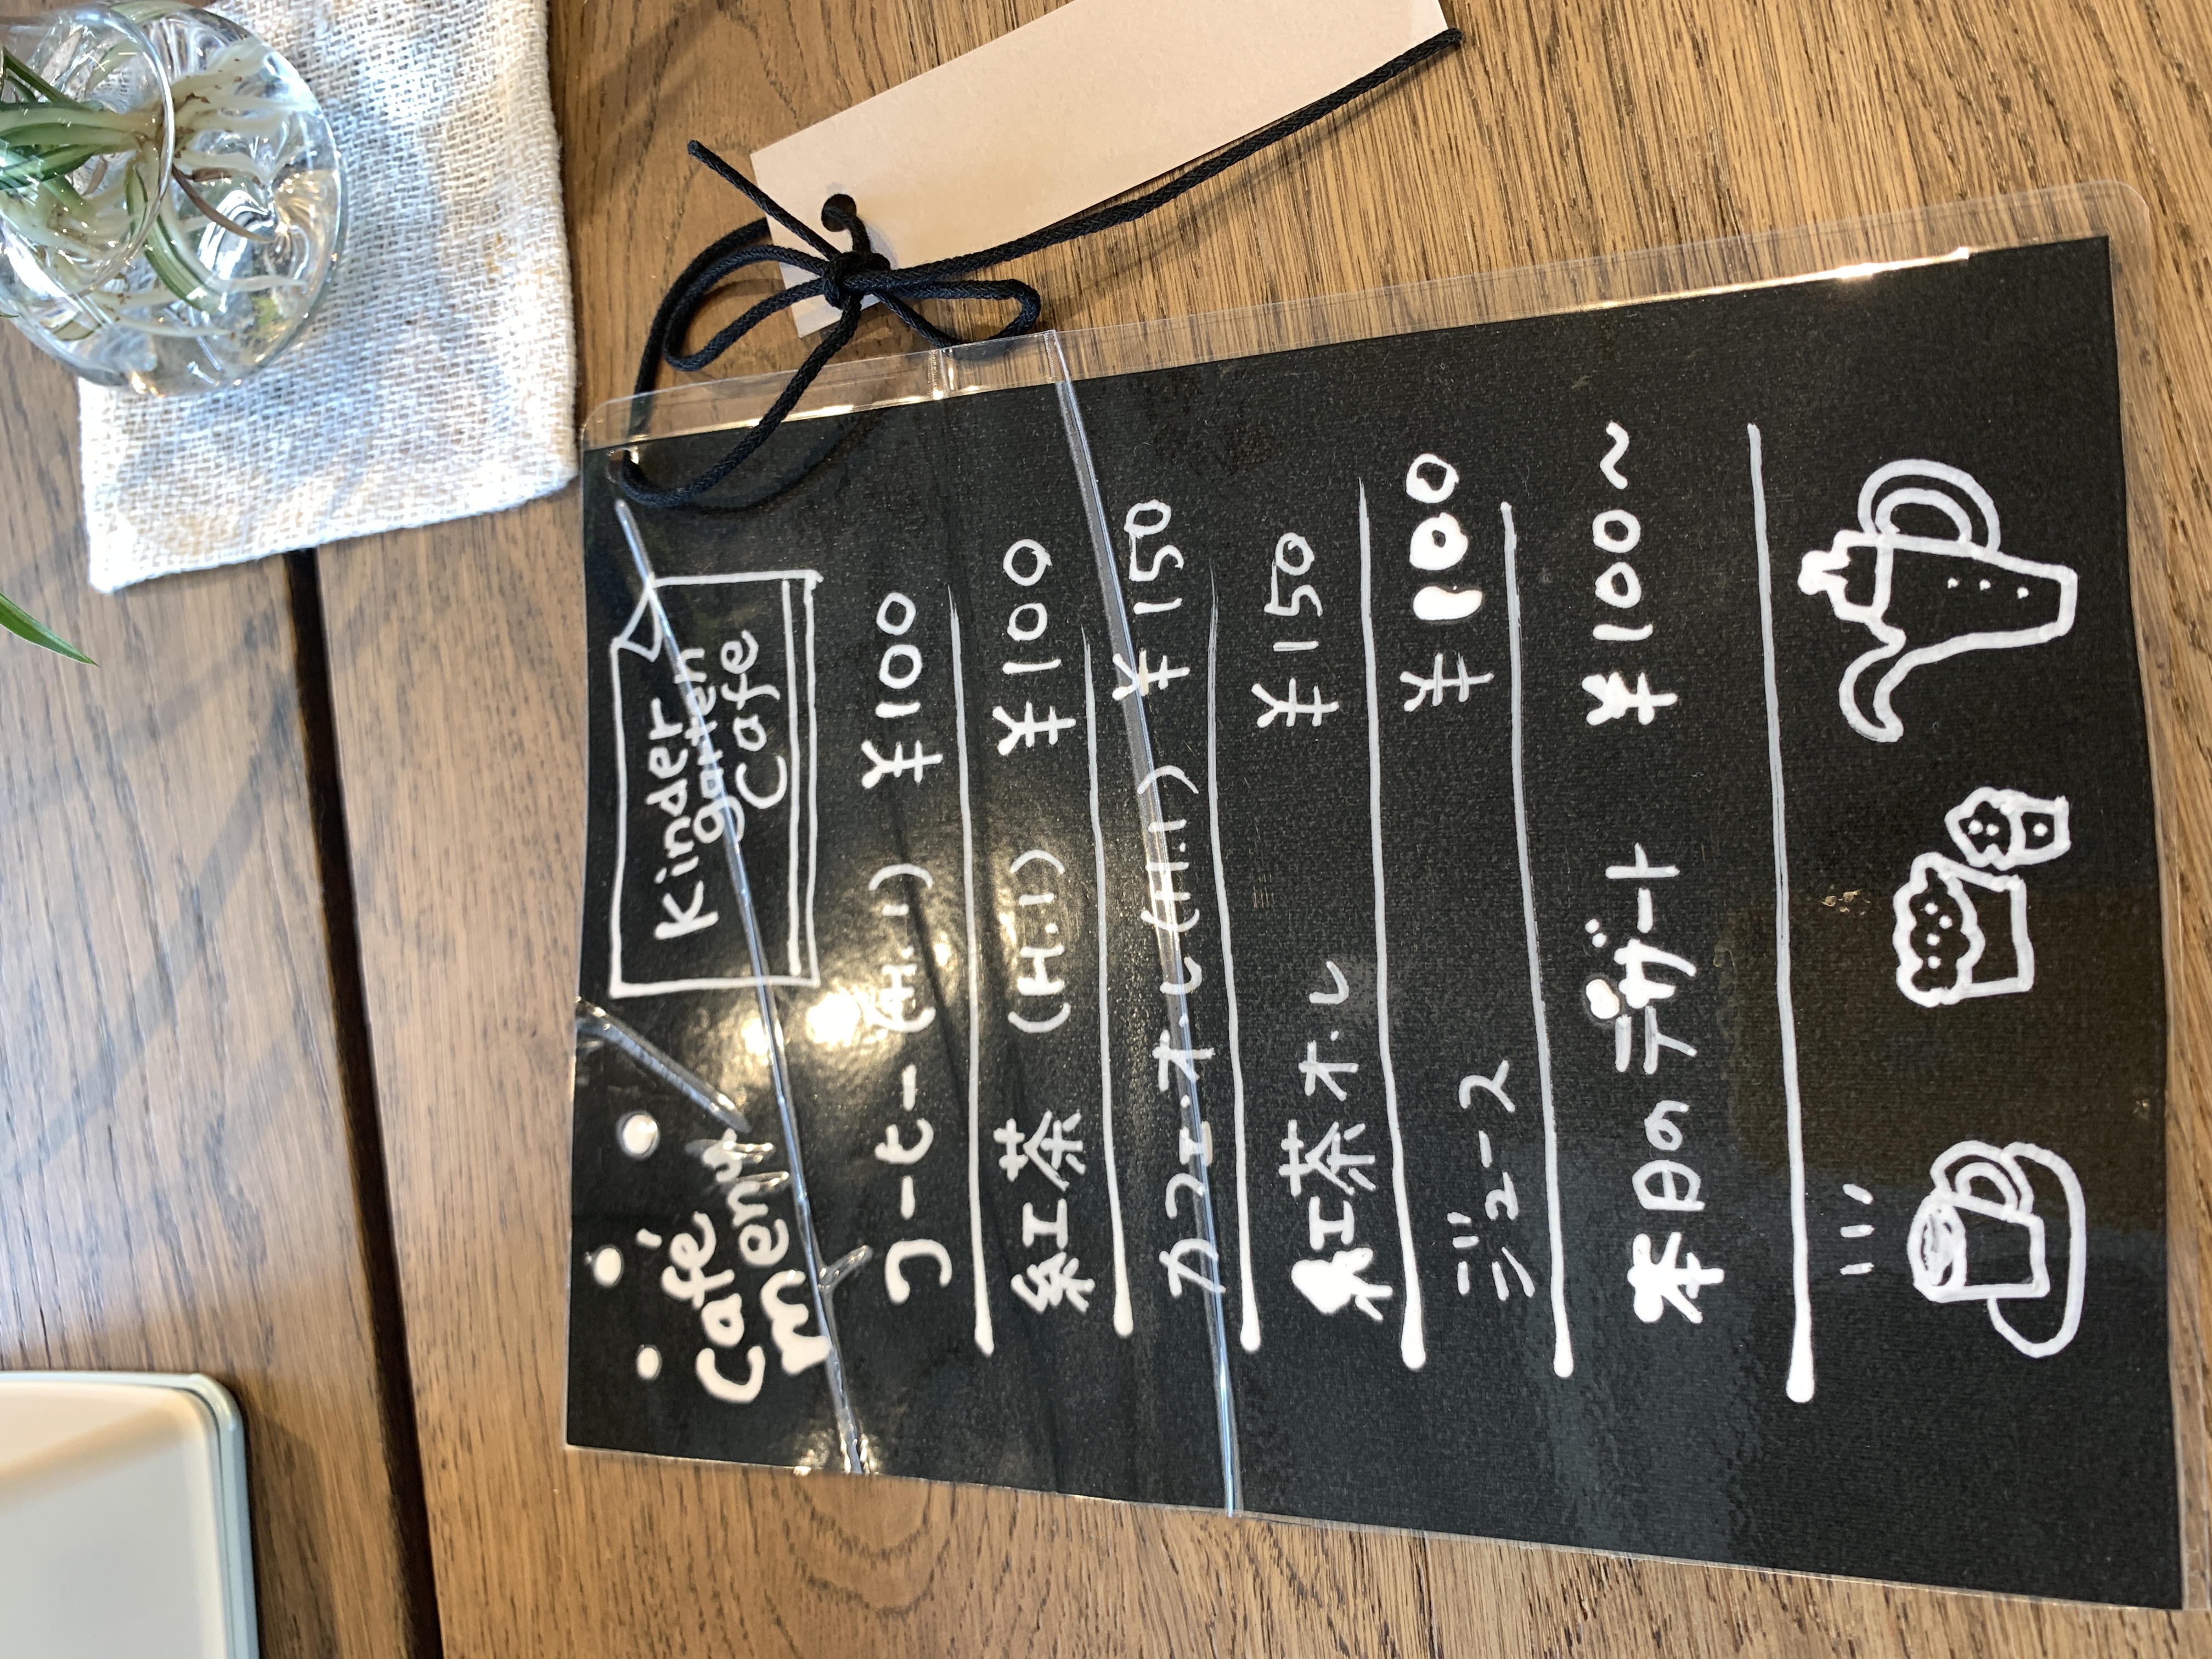 Café
menu
Kinder
garten
Cafe
コーヒー (H.I) ¥100
紅茶 (H.I) ¥100
カフェ・オ・レ (H.I) ¥150
紅茶オ・レ ¥150
ジュース ¥100
本日のデザート ¥100~